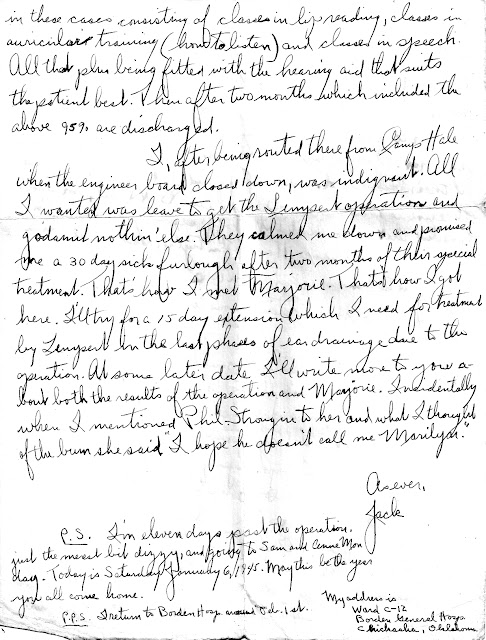 in these cases consisting of classes in lip reading, classes in
auricular training (how to listen) and classes in speech.
All that plus being fitted with the hearing aid that suits
the patient best. Then after two months which included the
above 95% are discharged.
I, after being routed there from Camp Hale
when the engineer board closed down, was indignant. All
I wanted was leave to get the Lempert operation and
godamit nothin' else. They calmed me down and promised
me a 30 day sick furlough after two months of their special
treatment. That's how I met Marjorie. That's how I got
here. I'll try for a 15 day extension which I need for treatment
by Lempert in the last phases of ear drainage due to the
operation. At some later date I'll write more to you a-
bout both the results of the operation and Marjorie. Incidentally
when I mentioned Phil Strongin to her and what I thought
of the bum she said "I hope he doesn't call me Marilyn."
As ever,
Jack
P.S. I'm eleven days past the operation.
just the merest bit dizzy, and going to Sam and Anne Mon
day. Today is Saturday January 6, 1945. May this be the year
you all come home.
P.P.S. I return to Borden Hosp around 1st.
My address is
Ward C-12
Borden General Hosp.
Chickasha, Oklahoma